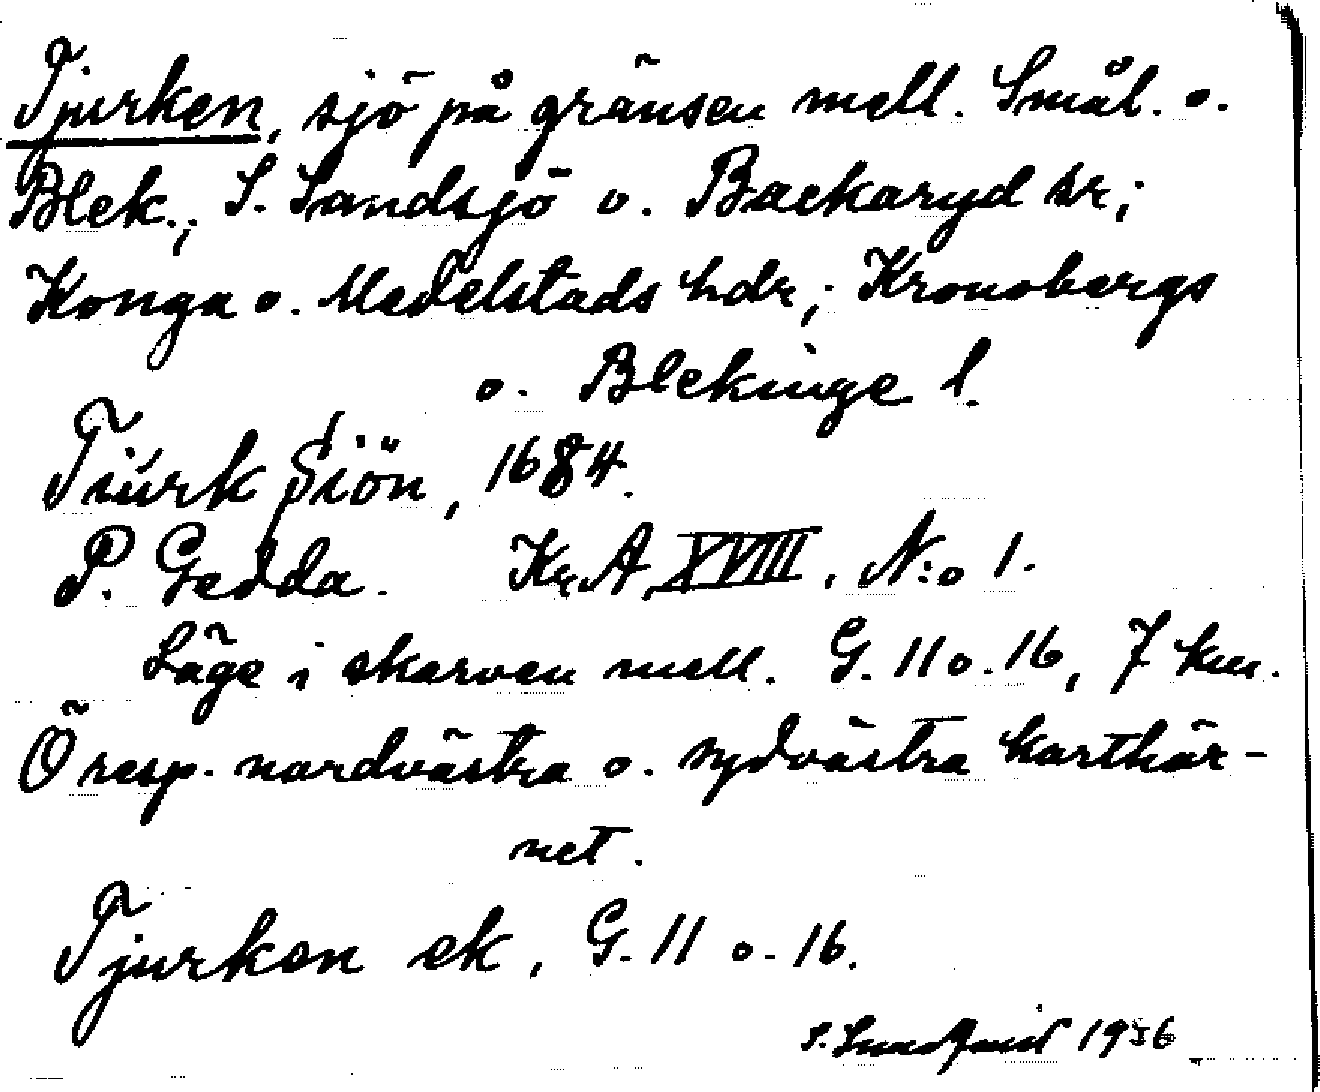 Tjurken, sjö på gränsen mell. Smål. o.
Blek.; S. Sandsjö o. Backaryd sr;
Konga o. Medelstads hdr; Kronobergs
o. Blekinge l.
Tiurk Siön, 1684.
P. Gedda. Kr.A XVIII, N:o 1.
Läge i skarven mell. G. 11 o. 16, 7 km.
Ö resp. nordvästra o. sydvästra karthör-
net.
Tjurken ek, G. 11 o. 16.
S. Sundquist 1936